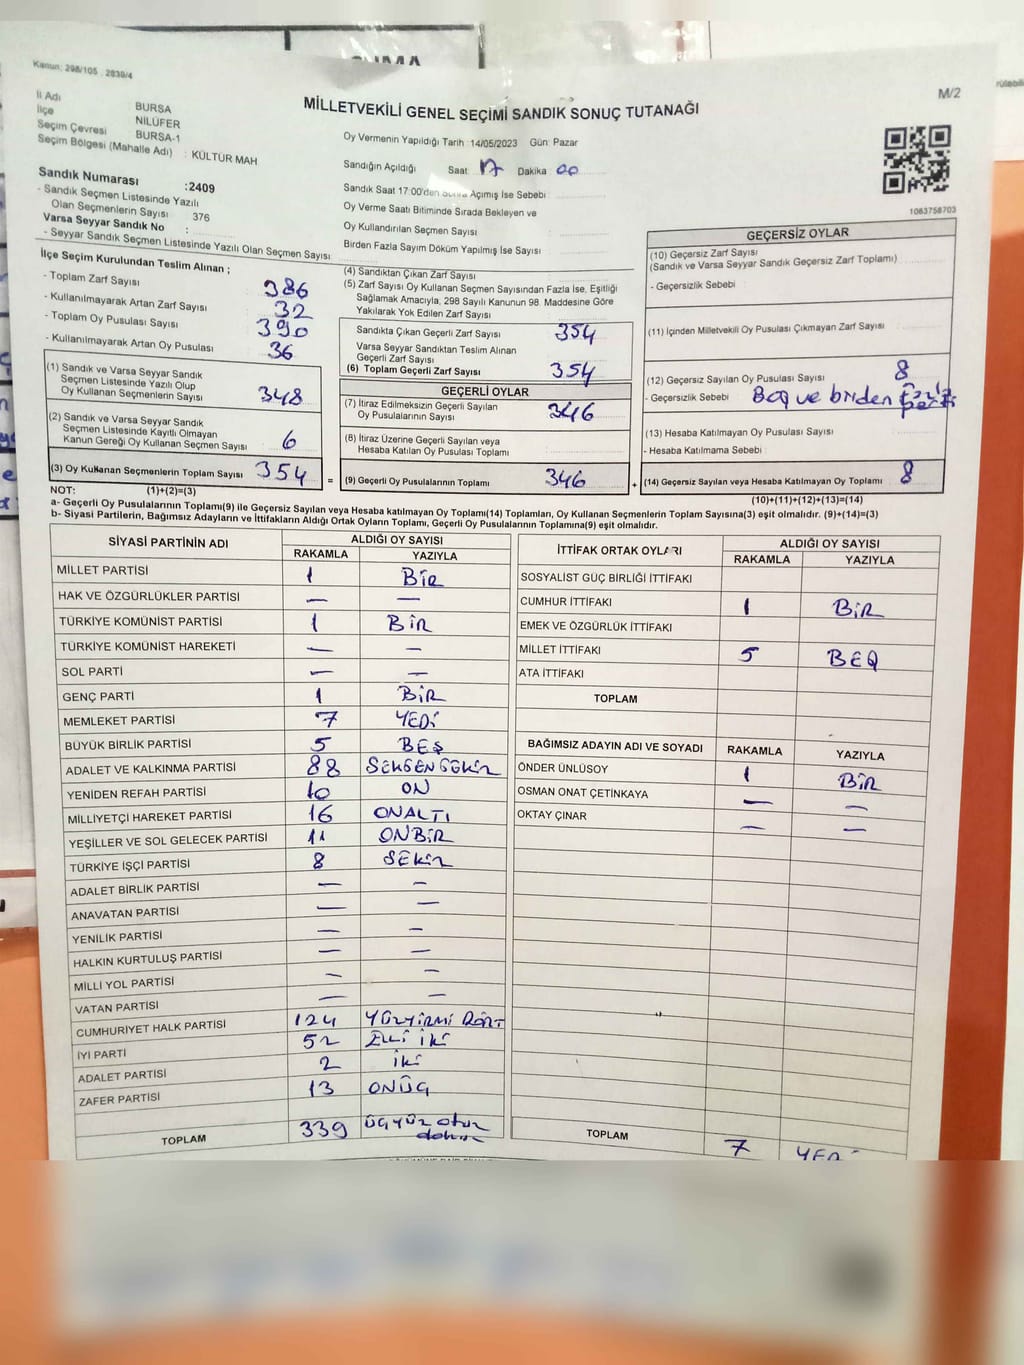 Kanun: 298/105 . 2839/4
M/2
MİLLETVEKİLİ GENEL SEÇİMİ SANDIK SONUÇ TUTANAĞI
İl Adı BURSA
İlçe NİLÜFER
Seçim Çevresi BURSA-1
Seçim Bölgesi (Mahalle Adı) : KÜLTÜR MAH
Sandık Numarası :2409
- Sandık Seçmen Listesinde Yazılı
Olan Seçmenlerin Sayısı 376
Varsa Seyyar Sandık No :
- Seyyar Sandık Seçmen Listesinde Yazılı Olan Seçmen Sayısı
Oy Vermenin Yapıldığı Tarih :14/05/2023 Gün: Pazar
Sandığın Açıldığı Saat 17 Dakika 00
Sandık Saat 17:00'den Sonra Açımış İse Sebebi :
Oy Verme Saati Bitiminde Sırada Bekleyen ve
Oy Kullandırılan Seçmen Sayısı :
Birden Fazla Sayım Döküm Yapılmış İse Sayısı :
1063758703
İlçe Seçim Kurulundan Teslim Alınan ;
- Toplam Zarf Sayısı 386
- Kullanılmayarak Artan Zarf Sayısı 32
- Toplam Oy Pusulası Sayısı 390
- Kullanılmayarak Artan Oy Pusulası 36
(1) Sandık ve Varsa Seyyar Sandık
Seçmen Listesinde Yazılı Olup
Oy Kullanan Seçmenlerin Sayısı 348
(2) Sandık ve Varsa Seyyar Sandık
Seçmen Listesinde Kayıtlı Olmayan
Kanun Gereği Oy Kullanan Seçmen Sayısı 6
(3) Oy Kullanan Seçmenlerin Toplam Sayısı 354 =
(4) Sandıktan Çıkan Zarf Sayısı
(5) Zarf Sayısı Oy Kullanan Seçmen Sayısından Fazla İse, Eşitliği
Sağlamak Amacıyla, 298 Sayılı Kanunun 98. Maddesine Göre
Yakılarak Yok Edilen Zarf Sayısı
Sandıkta Çıkan Geçerli Zarf Sayısı 354
Varsa Seyyar Sandıktan Teslim Alınan
Geçerli Zarf Sayısı
(6) Toplam Geçerli Zarf Sayısı 354
GEÇERLİ OYLAR
(7) İtiraz Edilmeksizin Geçerli Sayılan
Oy Pusulalarının Sayısı 346
(8) İtiraz Üzerine Geçerli Sayılan veya
Hesaba Katılan Oy Pusulası Toplamı
(9) Geçerli Oy Pusulalarının Toplamı 346 +
GEÇERSİZ OYLAR
(10) Geçersiz Zarf Sayısı
(Sandık ve Varsa Seyyar Sandık Geçersiz Zarf Toplamı)
- Geçersizlik Sebebi :
(11) İçinden Milletvekili Oy Pusulası Çıkmayan Zarf Sayısı
(12) Geçersiz Sayılan Oy Pusulası Sayısı 8
- Geçersizlik Sebebi : Boş ve birden fazla
(13) Hesaba Katılmayan Oy Pusulası Sayısı
- Hesaba Katılmama Sebebi :
(14) Geçersiz Sayılan veya Hesaba Katılmayan Oy Toplamı 8
NOT: (1)+(2)=(3) (10)+(11)+(12)+(13)=(14)
a- Geçerli Oy Pusulalarının Toplamı(9) ile Geçersiz Sayılan veya Hesaba katılmayan Oy Toplamı(14) Toplamları, Oy Kullanan Seçmenlerin Toplam Sayısına(3) eşit olmalıdır. (9)+(14)=(3)
b- Siyasi Partilerin, Bağımsız Adayların ve İttifakların Aldığı Ortak Oyların Toplamı, Geçerli Oy Pusulalarının Toplamına(9) eşit olmalıdır.
SİYASİ PARTİNİN ADI ALDIĞI OY SAYISI
RAKAMLA YAZIYLA
MİLLET PARTİSİ 1 BİR
HAK VE ÖZGÜRLÜKLER PARTİSİ — —
TÜRKİYE KOMÜNİST PARTİSİ 1 BİR
TÜRKİYE KOMÜNİST HAREKETİ — —
SOL PARTİ — —
GENÇ PARTİ 1 BİR
MEMLEKET PARTİSİ 7 YEDİ
BÜYÜK BİRLİK PARTİSİ 5 BEŞ
ADALET VE KALKINMA PARTİSİ 88 SEKSENSEKİZ
YENİDEN REFAH PARTİSİ 10 ON
MİLLİYETÇİ HAREKET PARTİSİ 16 ONALTI
YEŞİLLER VE SOL GELECEK PARTİSİ 11 ONBİR
TÜRKİYE İŞÇİ PARTİSİ 8 SEKİZ
ADALET BİRLİK PARTİSİ — —
ANAVATAN PARTİSİ — —
YENİLİK PARTİSİ — —
HALKIN KURTULUŞ PARTİSİ — —
MİLLİ YOL PARTİSİ — —
VATAN PARTİSİ — —
CUMHURİYET HALK PARTİSİ 124 YÜZYİRMİ DÖRT
İYİ PARTİ 52 ELLİ İKİ
ADALET PARTİSİ 2 İKİ
ZAFER PARTİSİ 13 ONÜÇ
TOPLAM 339 üçyüz otuz
dokuz
İTTİFAK ORTAK OYLARI ALDIĞI OY SAYISI
RAKAMLA YAZIYLA
SOSYALİST GÜÇ BİRLİĞİ İTTİFAKI
CUMHUR İTTİFAKI 1 BİR
EMEK VE ÖZGÜRLÜK İTTİFAKI
MİLLET İTTİFAKI 5 BEŞ
ATA İTTİFAKI
TOPLAM
BAĞIMSIZ ADAYIN ADI VE SOYADI RAKAMLA YAZIYLA
ÖNDER ÜNLÜSOY 1 BİR
OSMAN ONAT ÇETİNKAYA — —
OKTAY ÇINAR — —
TOPLAM 7 YEDİ